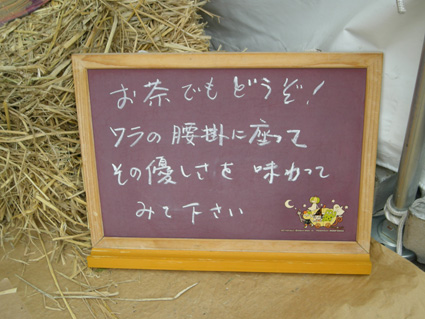 お茶でもどうぞ!
ワラの腰掛に座って
その優しさを 味わって
みて下さい